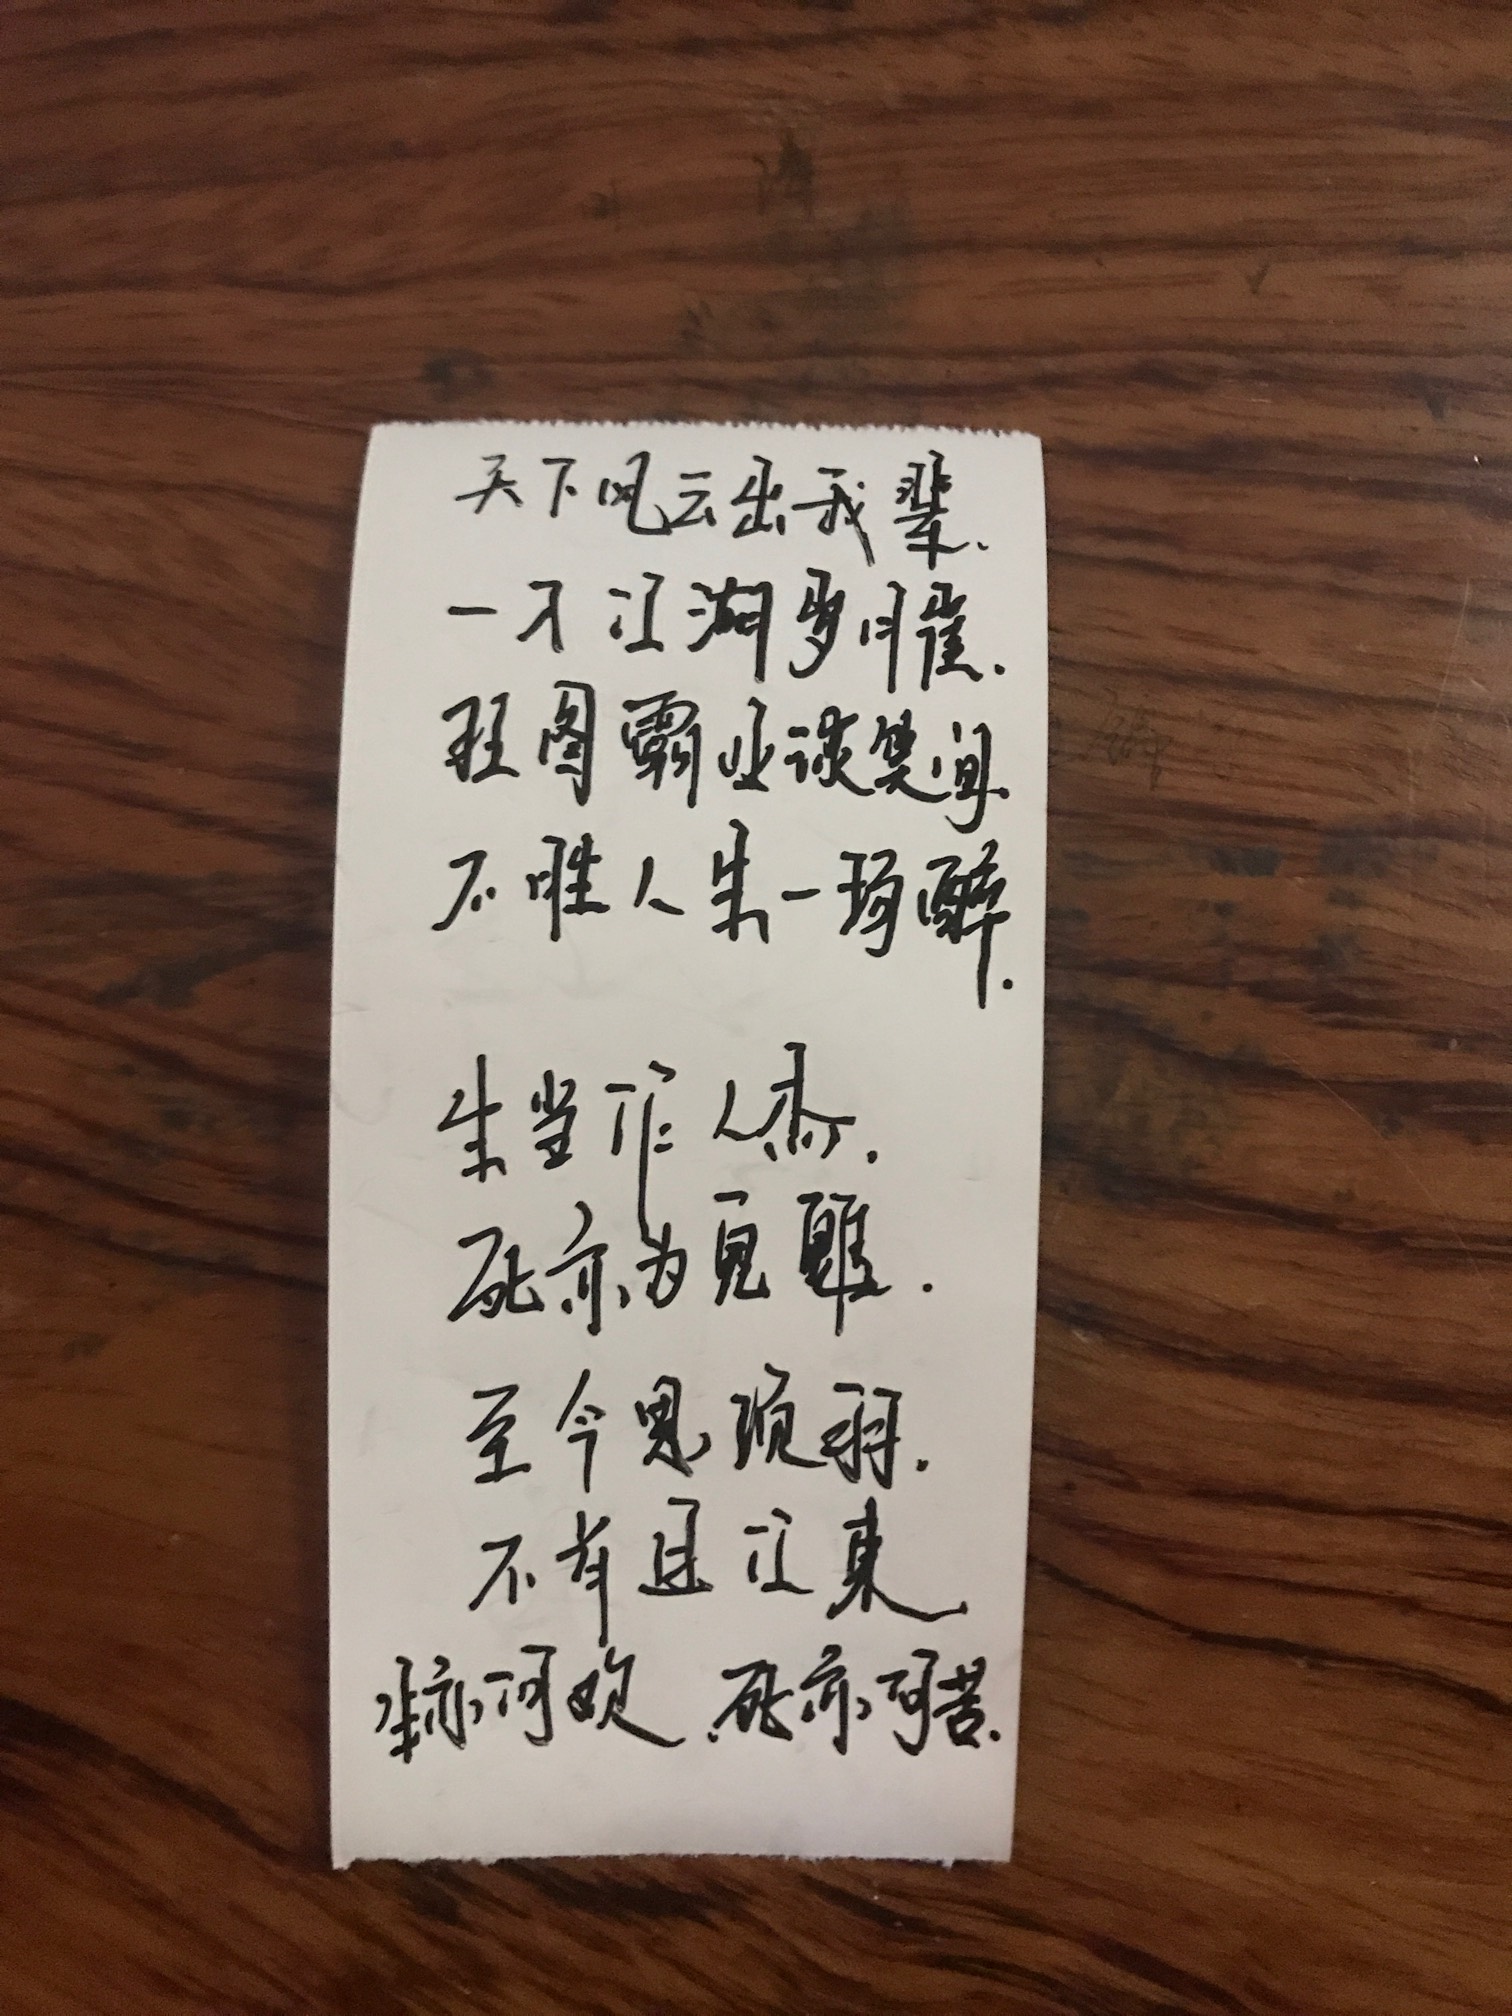 天下风云出我辈.
一入江湖岁月催.
王图霸业谈笑间.
不胜人生一场醉.
生当作人杰.
死亦为鬼雄.
至今思项羽.
不肯过江东
生亦何欢 死亦何苦.